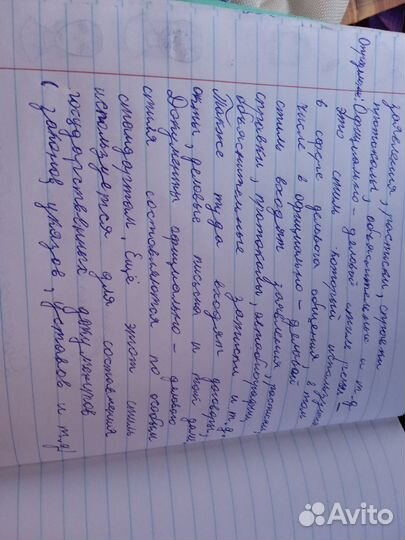 заявления, расписки, справки
протоколы, объяснительные и т.д.
Официально-деловой стиль речи -
это стиль который используется
в сфере делового общения, в том
числе в официально-деловой
стиль входят заявления, расписки,
справки, протоколы, автобиографии,
объяснительные записки и т.д.
Также туда входят договоры,
акты, деловые письма и
Документы официально-делового
стиля составляются по особым
стандартам, Ещё этот стиль
используется для составления
государственных документов
(законов, указов, уставов и т.д)
Avito